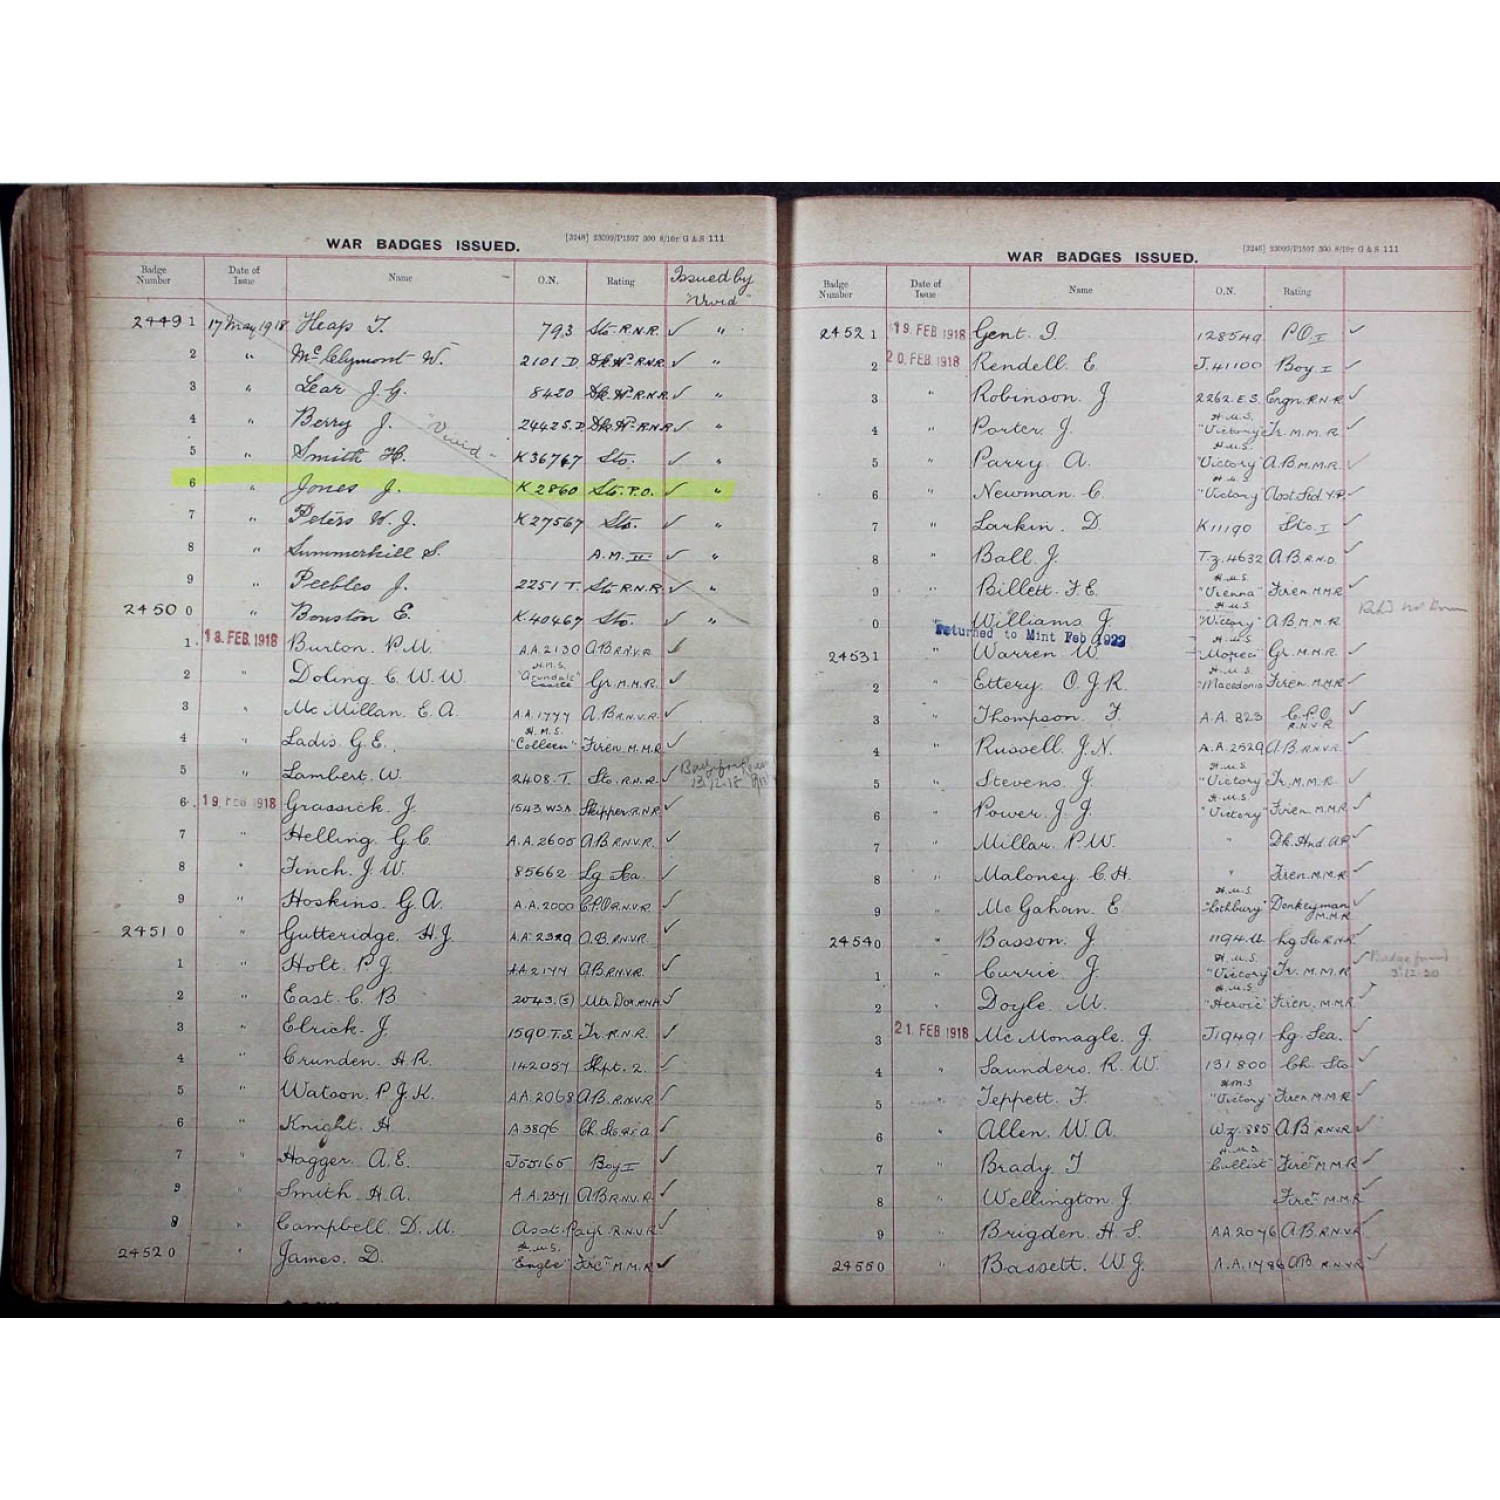 WAR BADGES ISSUED.
[3246] 23099/P1597 300 8/16r G & S 111
Badge Number Date of Issue Name O.N. Rating Issued by "Vivid"
24491 17 May 1918 Heap T. 793 Sto. R.N.R. ✓ "
2 " McClymont W. 2101 D Dk Hd R.N.R. ✓ "
3 " Lear J.G. 8420 Dk Hd R.N.R ✓ "
4 " Berry J. "Vivid" 2442 S.D Dk Hd R.N.R ✓ "
5 " Smith H. K36767 Sto. ✓ "
6 " Jones J. K 2860 Sto. P.O. ✓ "
7 " Peters W.J. K27567 Sto. ✓ "
8 " Summerhill S. A.M. II ✓ "
9 " Peebles J. 2251 T. Sto R.N.R. ✓ "
24500 " Bouston E. K.40467 Sto. ✓ "
1. 18. FEB. 1918 Burton. P.M. A.A.2130 A.B R.N.V.R. ✓
2 " Doling. C.W.W. H.M.S. "Arundale Castle" Gr. M.M.R. ✓
3 " Mc Millan. E.A. A.A.1777 A.B R.N.V.R. ✓
4 " Ladis. G.E. H.M.S. "Colleen" Firen. M.M.R. ✓
5 " Lambert. W. 2408. T. Sto. R.N.R. ✓
6. 19. FEB 1918 Grassick. J. 1543. W.S.A Skipper. R.N.R. ✓
7 " Helling. G.C. A.A.2605 A.B R.N.V.R. ✓
8 " Finch. J.W. 85662 Lg. Sea. ✓
9 " Hoskins. G.A. A.A.2000 C.P.O R.N.V.R. ✓
24510 " Gutteridge. H.J. A.A.2329 A.B. R.N.V.R. ✓
1 " Holt. P.J. A.A 2177 A.B R.N.V.R. ✓
2 " East. C.B 2043.(S)
3 " Elrick. J. 1590.T.S. Tr. R.N.R. ✓
4 " Crunden. H.R. 142057 Shpt. 2. ✓
5 " Watson. P.J.K. A.A.2068 A.B. R.N.V.R. ✓
6 " Knight. H. A3896 Ch. Sto ✓
7 " Hagger. A.E. J55165 Boy I ✓
9 " Smith. H.A. A.A.2571 A.B R.N.V.R. ✓
8 " Campbell. D.M. Asst. Payr. R.N.V.R ✓
24520 " James. D. H.M.S. "Eagle" Firen M.M.R ✓
WAR BADGES ISSUED.
[3246] 23099/P1597 300 8/16r G & S 111
Badge Number Date of Issue Name O.N. Rating
24521 19. FEB 1918 Gent. 128549 P.O. I ✓
2 20. FEB 1918 Rendell. E. J.41100 Boy. I ✓
3 " Robinson. J. 2262. E.S. Engn. R.N.R. ✓
4 " Porter. J. H.M.S. "Victory" Tr. M.M.R. ✓
5 " Parry. A. H.M.S. "Victory" A.B. M.M.R. ✓
6 " Newman. C. H.M.S. "Victory" Asst. Std. Y.P. ✓
7 " Larkin. D. K11190 Sto. I ✓
8 " Ball. J. T.Z. 4632 A.B R.N.D. ✓
9 " Billett. F.E. H.M.S. "Vienna" Firen. M.M.R ✓
0 " Williams. J. H.M.S. "Victory" A.B. M.M.R.
Returned to Mint Feb 1922
24531 " Warren. W. H.M.S. "Morea" Gr. M.M.R. ✓
2 " Ettery. O.J.R. H.M.S. "Macedonia" Firen. M.M.R. ✓
3 " Thompson. F. A.A. 823 C.P.O. R.N.V.R. ✓
4 " Russell. J.N. A.A.2529 A.B. R.N.V.R. ✓
5 " Stevens. J. H.M.S. "Victory" Tr. M.M.R. ✓
6 " Power. J.J. H.M.S. "Victory" Firen. M.M.R. ✓
7 " Millar. P.W. " Dk. Hnd. ✓
8 " Maloney. C.H. " Firen. M.M.R ✓
9 " Mc Gahan. E. H.M.S. "Lothbury" Donkeyman M.M.R. ✓
24540 " Basson. J. 1194. U. Lg Sto R.N.R. ✓
1 " Currie. J. H.M.S. "Victory" Tr. M.M.R. ✓ Badge found 3.12.20
2 " Doyle. M. H.M.S. "Heroic" Firen. M.M.R. ✓
3 21. FEB 1918 Mc Monagle. J. J19491 Lg. Sea. ✓
4 " Saunders. R.W. 131800 Ch. Sto. ✓
5 " Teppett. F. H.M.S. "Victory" Firen. M.M.R. ✓
6 " Allen. W.A. W.Z. 885 A.B R.N.V.R. ✓
7 " Brady. T H.M.S. "Cullist" Firen M.M.R ✓
8 " Wellington. J. Firen M.M.R ✓
9 " Brigden. H.S. A.A.2076 A.B. R.N.V.R ✓
24550 " Bassett. W.J. A.A.1786 A.B. R.N.V.R ✓